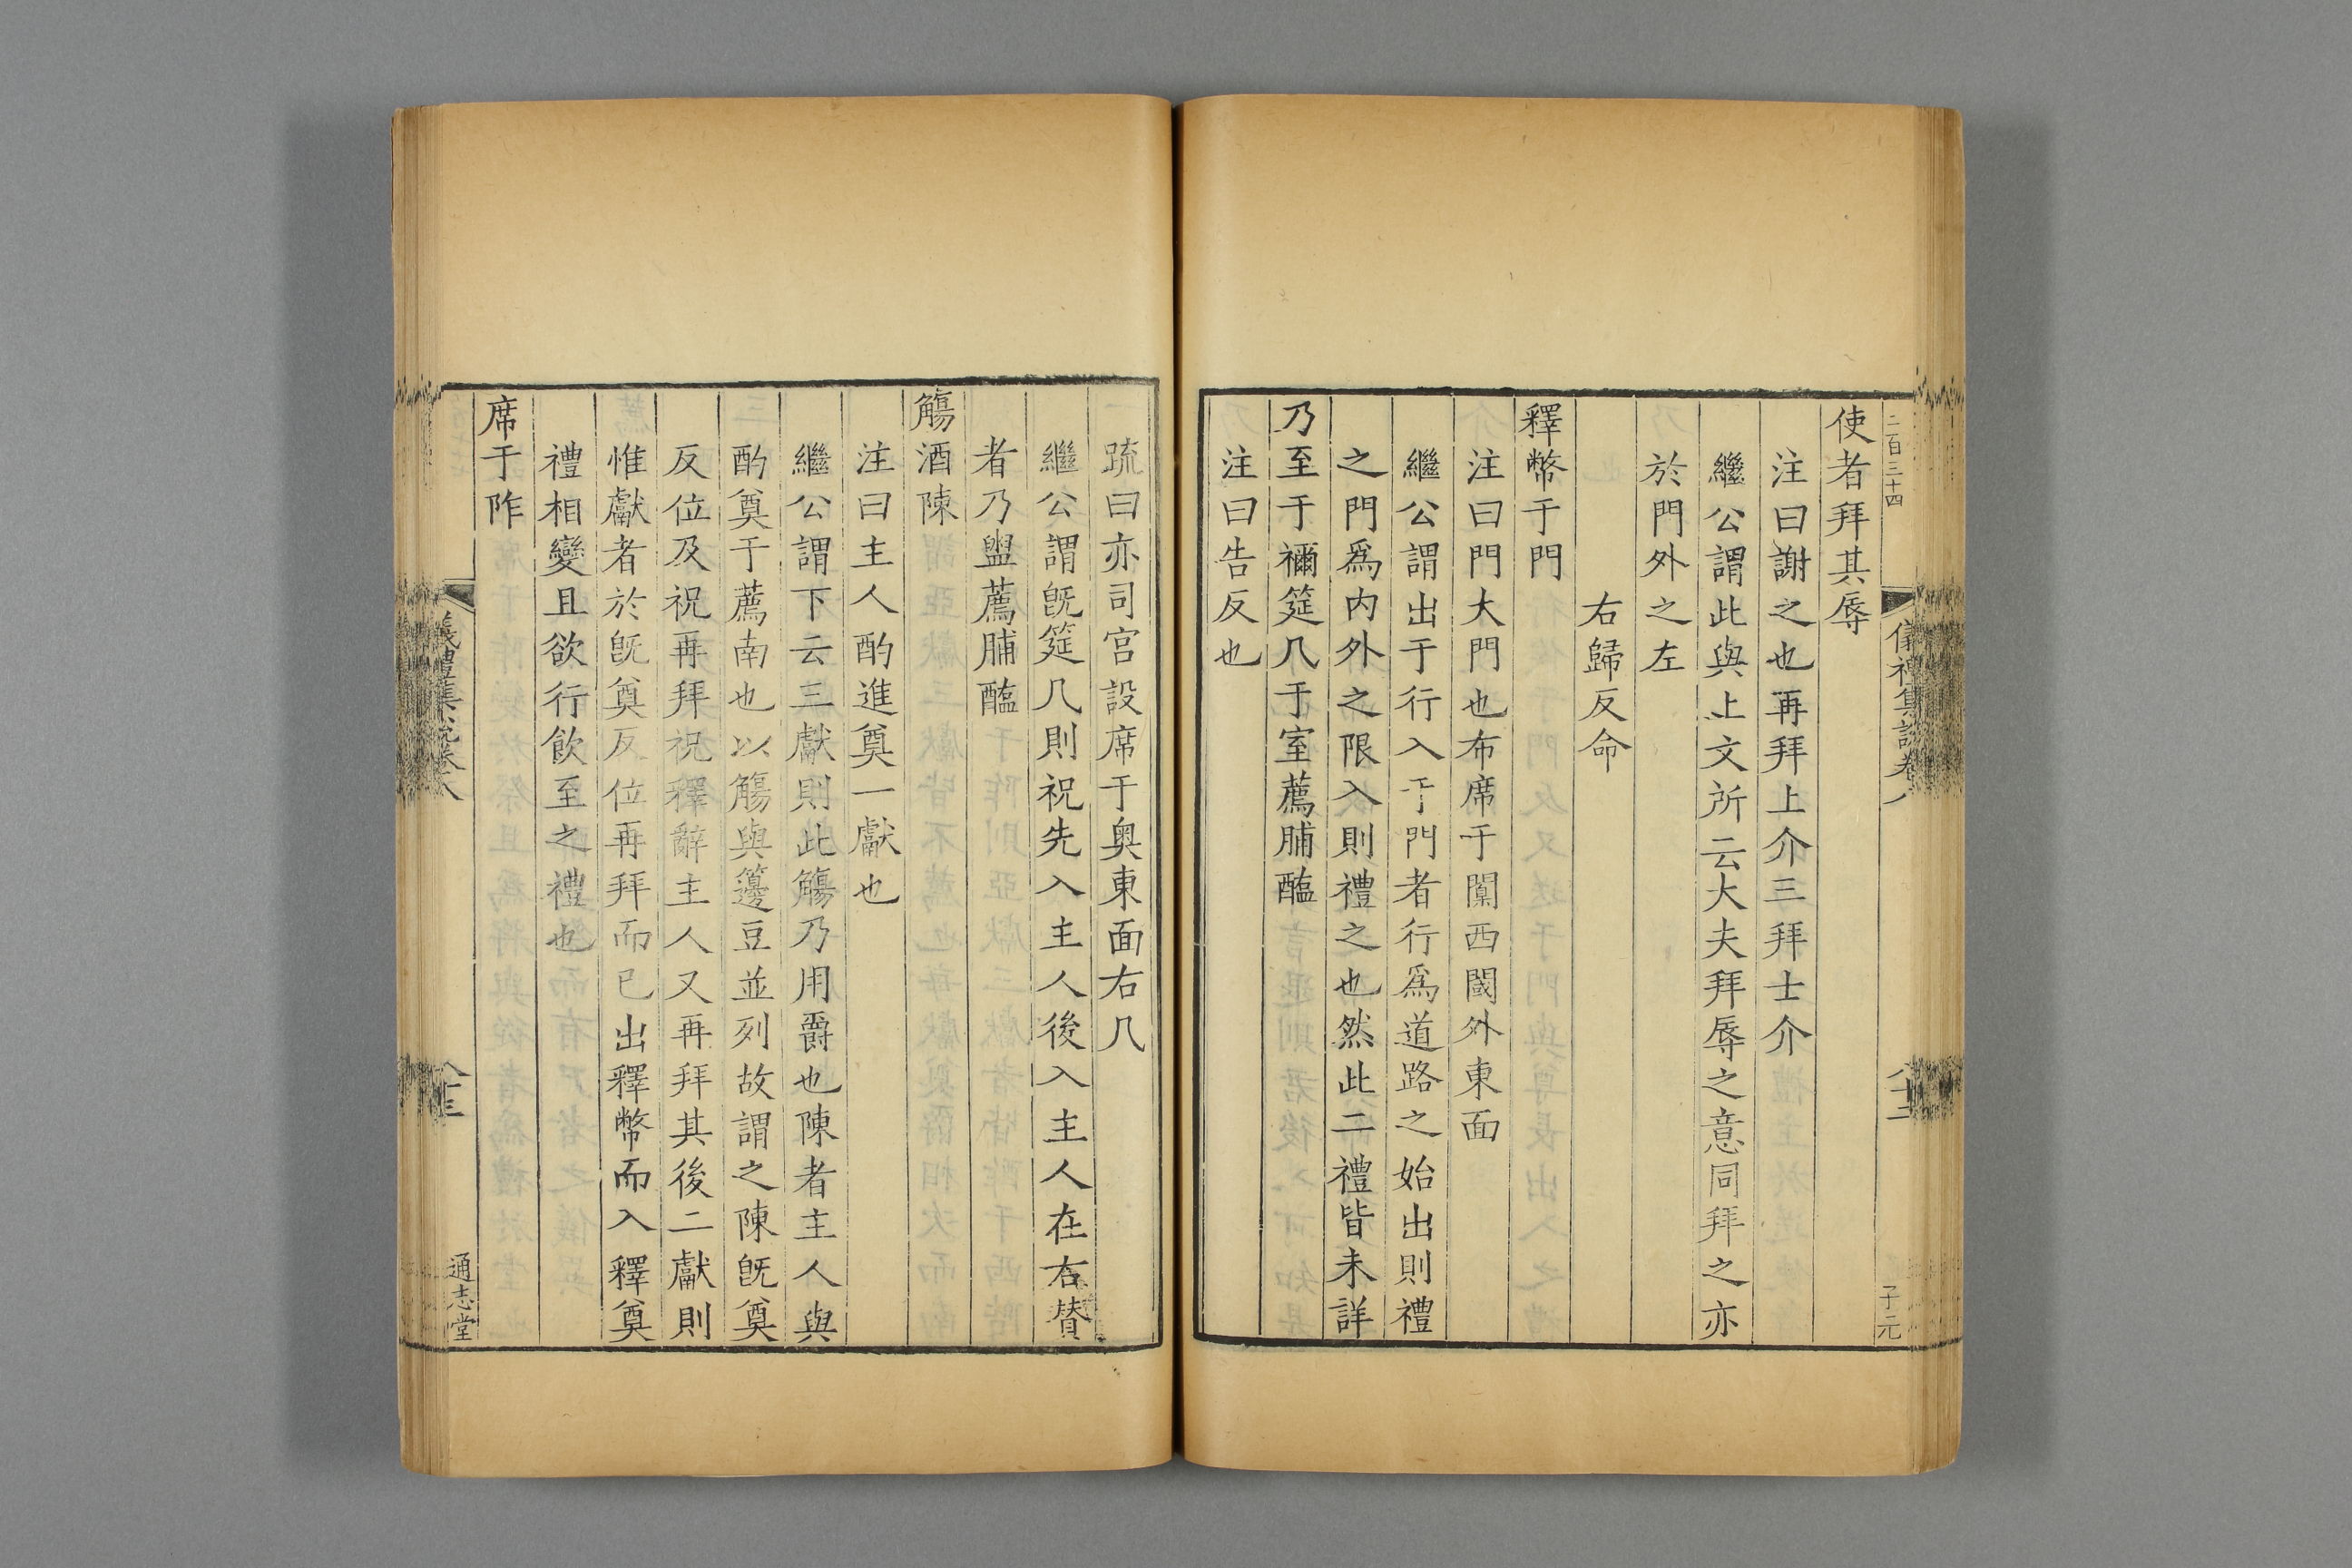 二百三十四
儀禮集說卷八
八十二
子元
使者拜其辱
注曰謝之也再拜上介三拜士介
繼公謂此與上文所云大夫拜辱之意同拜之亦
於門外之左
右歸反命
釋幣于門
注曰門大門也布席于闑西閾外東面
繼公謂出于行入于門者行爲道路之始出則禮
之門爲内外之限入則禮之也然此二禮皆未詳
乃至于禰筵几于室薦脯醢
注曰告反也
疏曰亦司宮設席于奥東面右几
繼公謂旣筵几則祝先入主人後入主人在右贊
者乃盥薦脯醢
觴酒陳
注曰主人酌進奠一獻也
繼公謂下云三獻則此觴乃用爵也陳者主人與
酌奠于薦南也以觴與籩豆並列故謂之陳旣奠
反位及祝再拜祝釋辭主人又再拜其後二獻則
惟獻者於旣奠反位再拜而已出釋幣而入釋奠
禮相變且欲行飲至之禮也
席于阼
儀禮集說卷八
八十三
通志堂